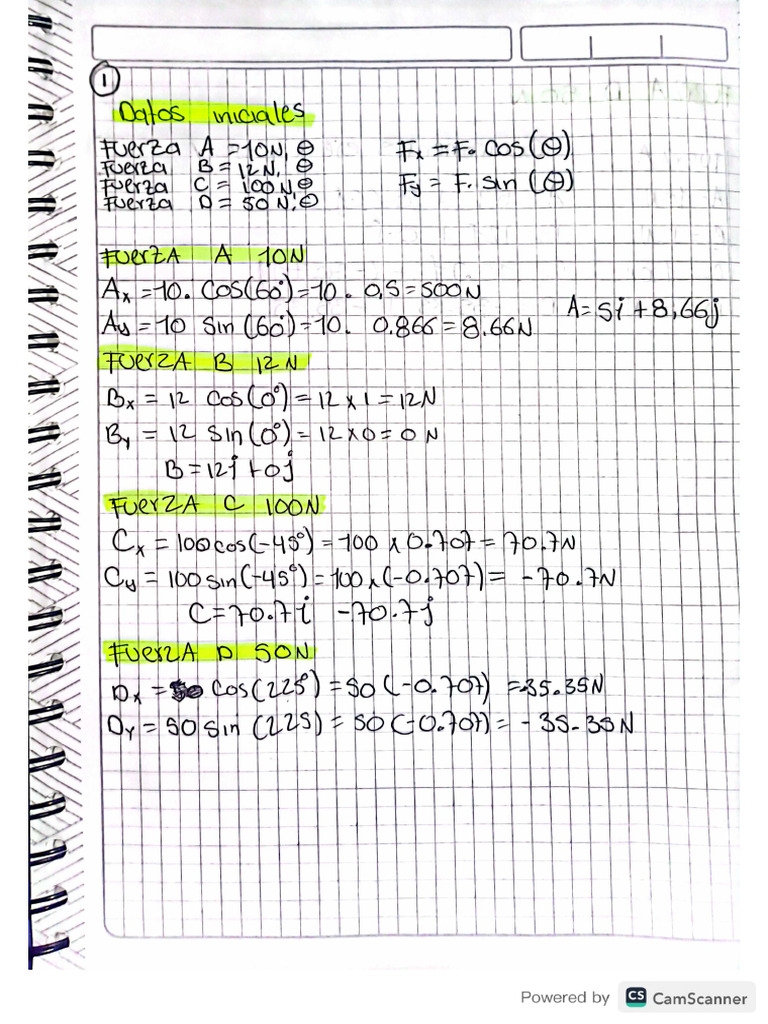 1
Datos iniciales
Fuerza A = 10N, θ
Fuerza B = 12N, θ
Fuerza C = 100N, θ
Fuerza D = 50 N, θ
Fx = F. cos(θ)
Fy = F. sin (θ)
Fuerza A 10N
Ax = 10. cos(60°) = 10. 0,5 = 500N
Ay = 10 sin (60°) = 10. 0.866 = 8.66N
A = 5i + 8,66j
Fuerza B 12N
Bx = 12 cos(0°) = 12 x 1 = 12N
By = 12 sin(0°) = 12 x 0 = 0 N
B = 12i + 0j
Fuerza C 100N
Cx = 100 cos(-45°) = 100 x 0.707 = 70.7N
Cy = 100 sin(-45°) = 100 x (-0.707) = -70.7N
C = 70.7i -70.7j
Fuerza D 50N
Dx = 50 cos(225°) = 50 (-0.707) = -35.35N
Dy = 50 sin (225) = 50 (-0.707) = -35.35N
Powered by CS CamScanner